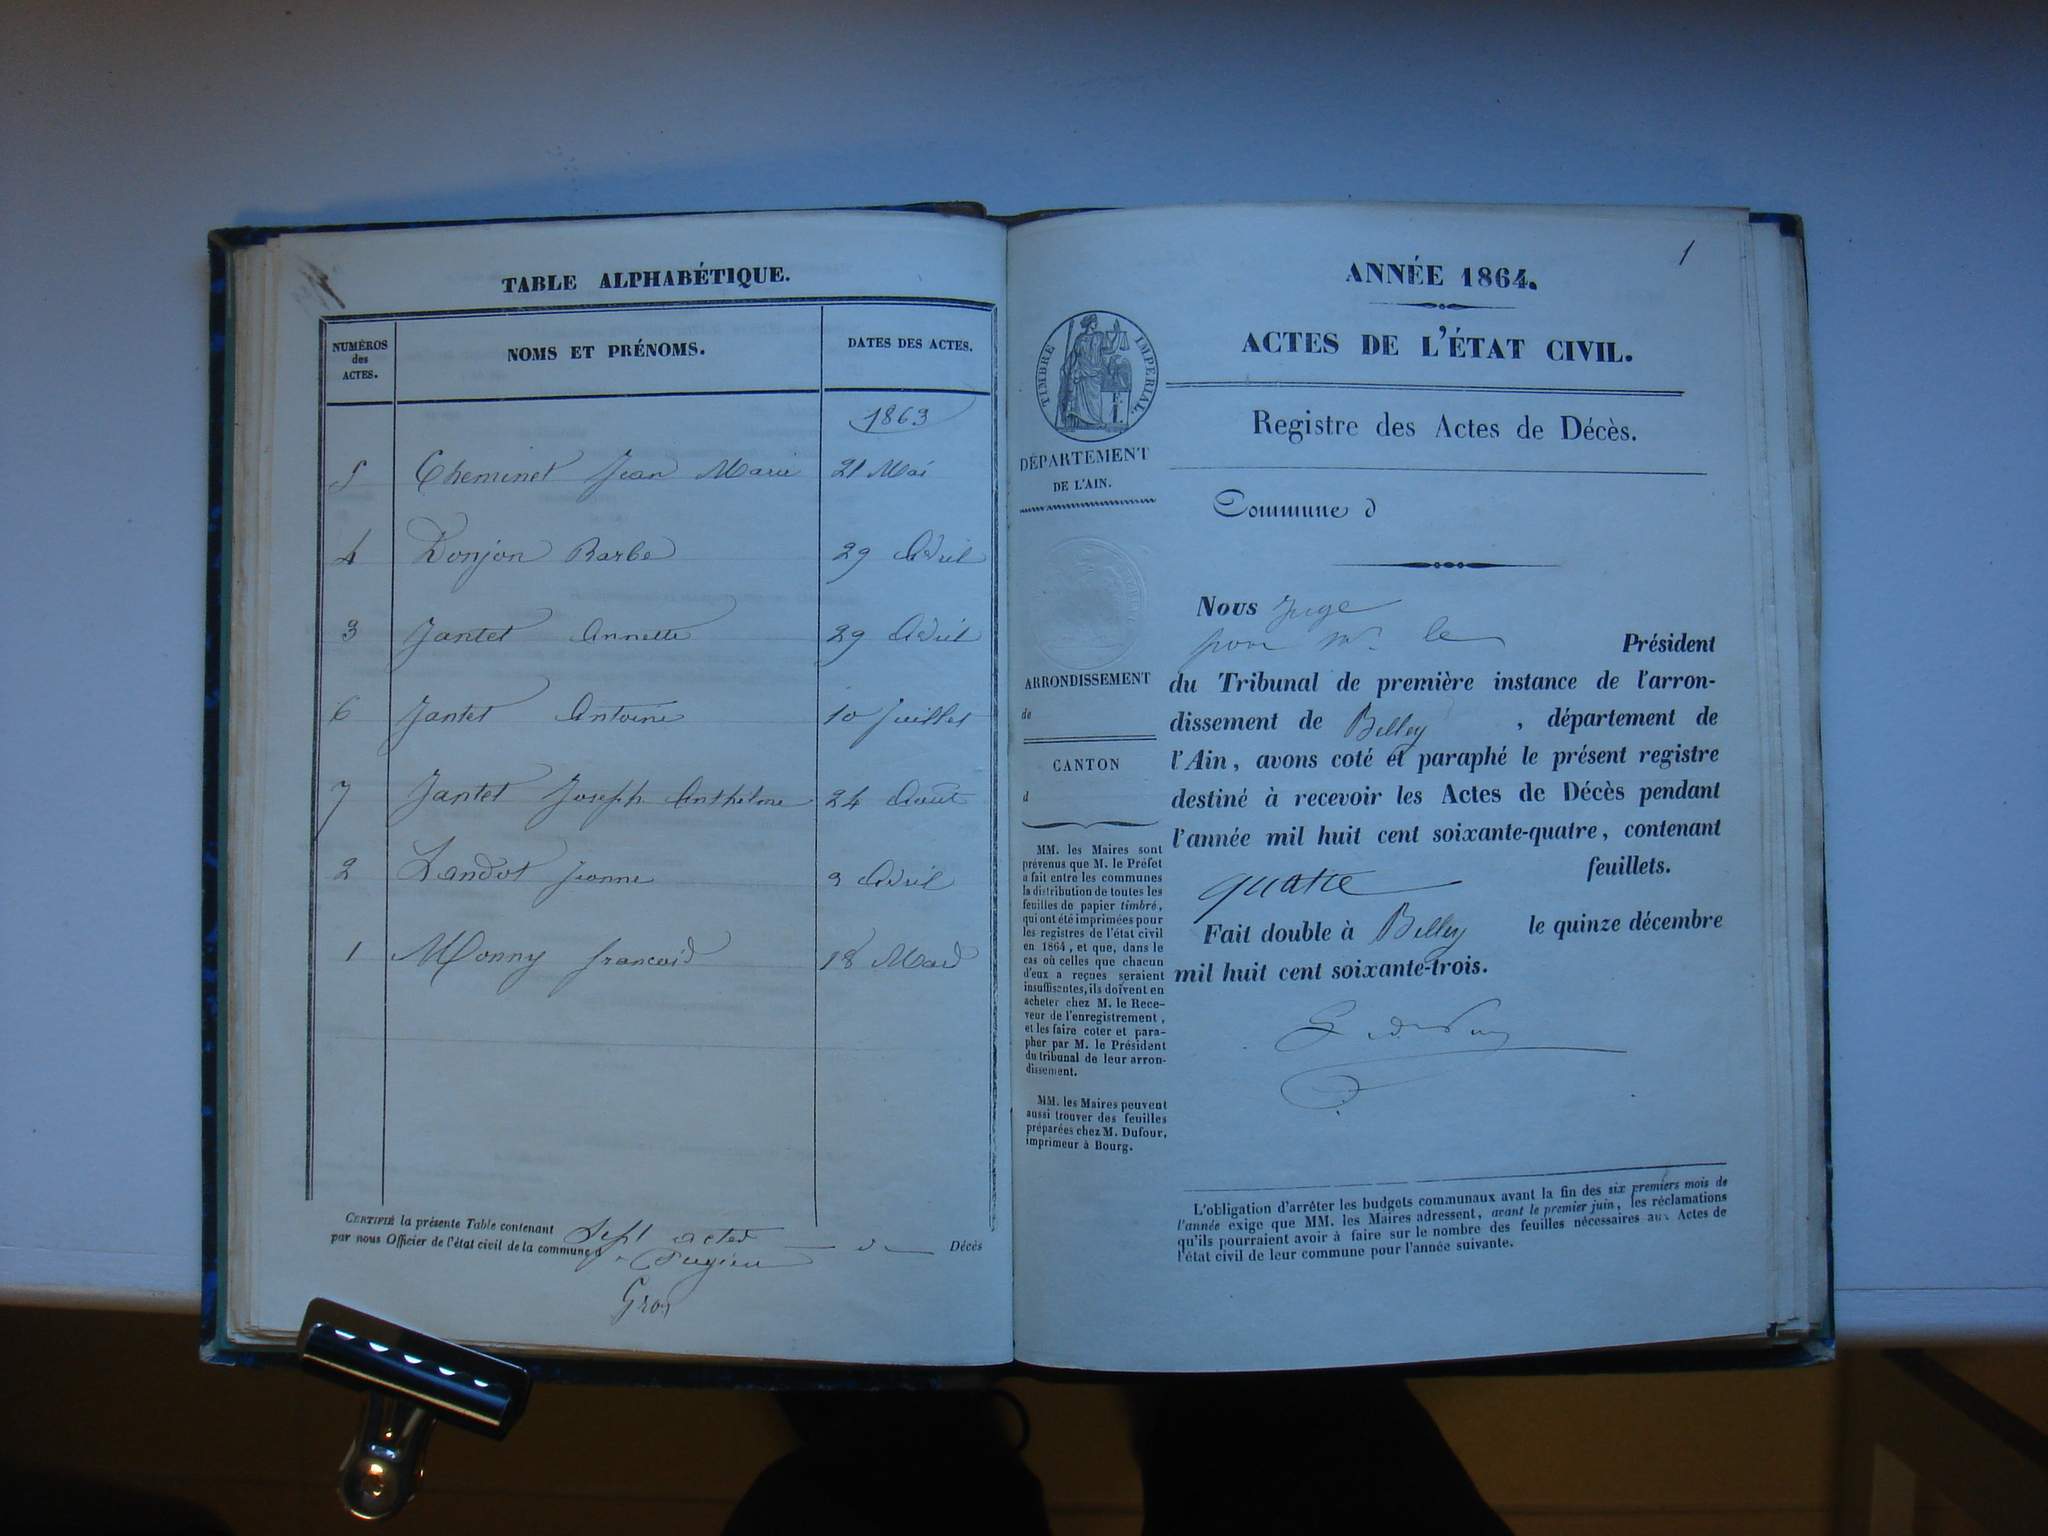 TABLE ALPHABÉTIQUE.
NUMÉROS des ACTES.
NOMS ET PRÉNOMS.
DATES DES ACTES.
1863
5 Cheminet Jean Marie 21 Mai
4 Donjon Barbe 29 Avril
3 Jantet Annette 29 Avril
6 Jantet Antoine 10 Juillet
7 Jantet Joseph Anthelme 24 Août
2 Landot Jeanne 9 Avril
1 Monny francois 18 Mars
CERTIFIÉ la présente Table contenant Sept actes de Décès
par nous Officier de l'état civil de la commune de Pugieu
Gros
1
ANNÉE 1864.
ACTES DE L'ÉTAT CIVIL.
Registre des Actes de Décès.
TIMBRE IMPÉRIAL.
DÉPARTEMENT
DE L'AIN.
ARRONDISSEMENT
de
CANTON
d
MM. les Maires sont
prévenus que M. le Préfet
a fait entre les communes
la distribution de toutes les
feuilles de papier timbré,
qui ont été imprimées pour
les registres de l'état civil
en 1864, et que, dans le
cas où celles que chacun
d'eux a reçues seraient
insuffisantes, ils doivent en
acheter chez M. le Rece-
veur de l'enregistrement,
et les faire coter et para-
pher par M. le Président
du tribunal de leur arron-
dissement.
MM. les Maires peuvent
aussi trouver des feuilles
préparées chez M. Dufour,
imprimeur à Bourg.
Commune d
Nous Juge
pour Mr le Président
du Tribunal de première instance de l'arron-
dissement de Belley, département de
l'Ain, avons coté et paraphé le présent registre
destiné à recevoir les Actes de Décès pendant
l'année mil huit cent soixante-quatre, contenant
quatre feuillets.
Fait double à Belley le quinze décembre
mil huit cent soixante-trois.
L'obligation d'arrêter les budgets communaux avant la fin des six premiers mois de
l'année exige que MM. les Maires adressent, avant le premier juin, les réclamations
qu'ils pourraient avoir à faire sur le nombre des feuilles nécessaires aux Actes de
l'état civil de leur commune pour l'année suivante.